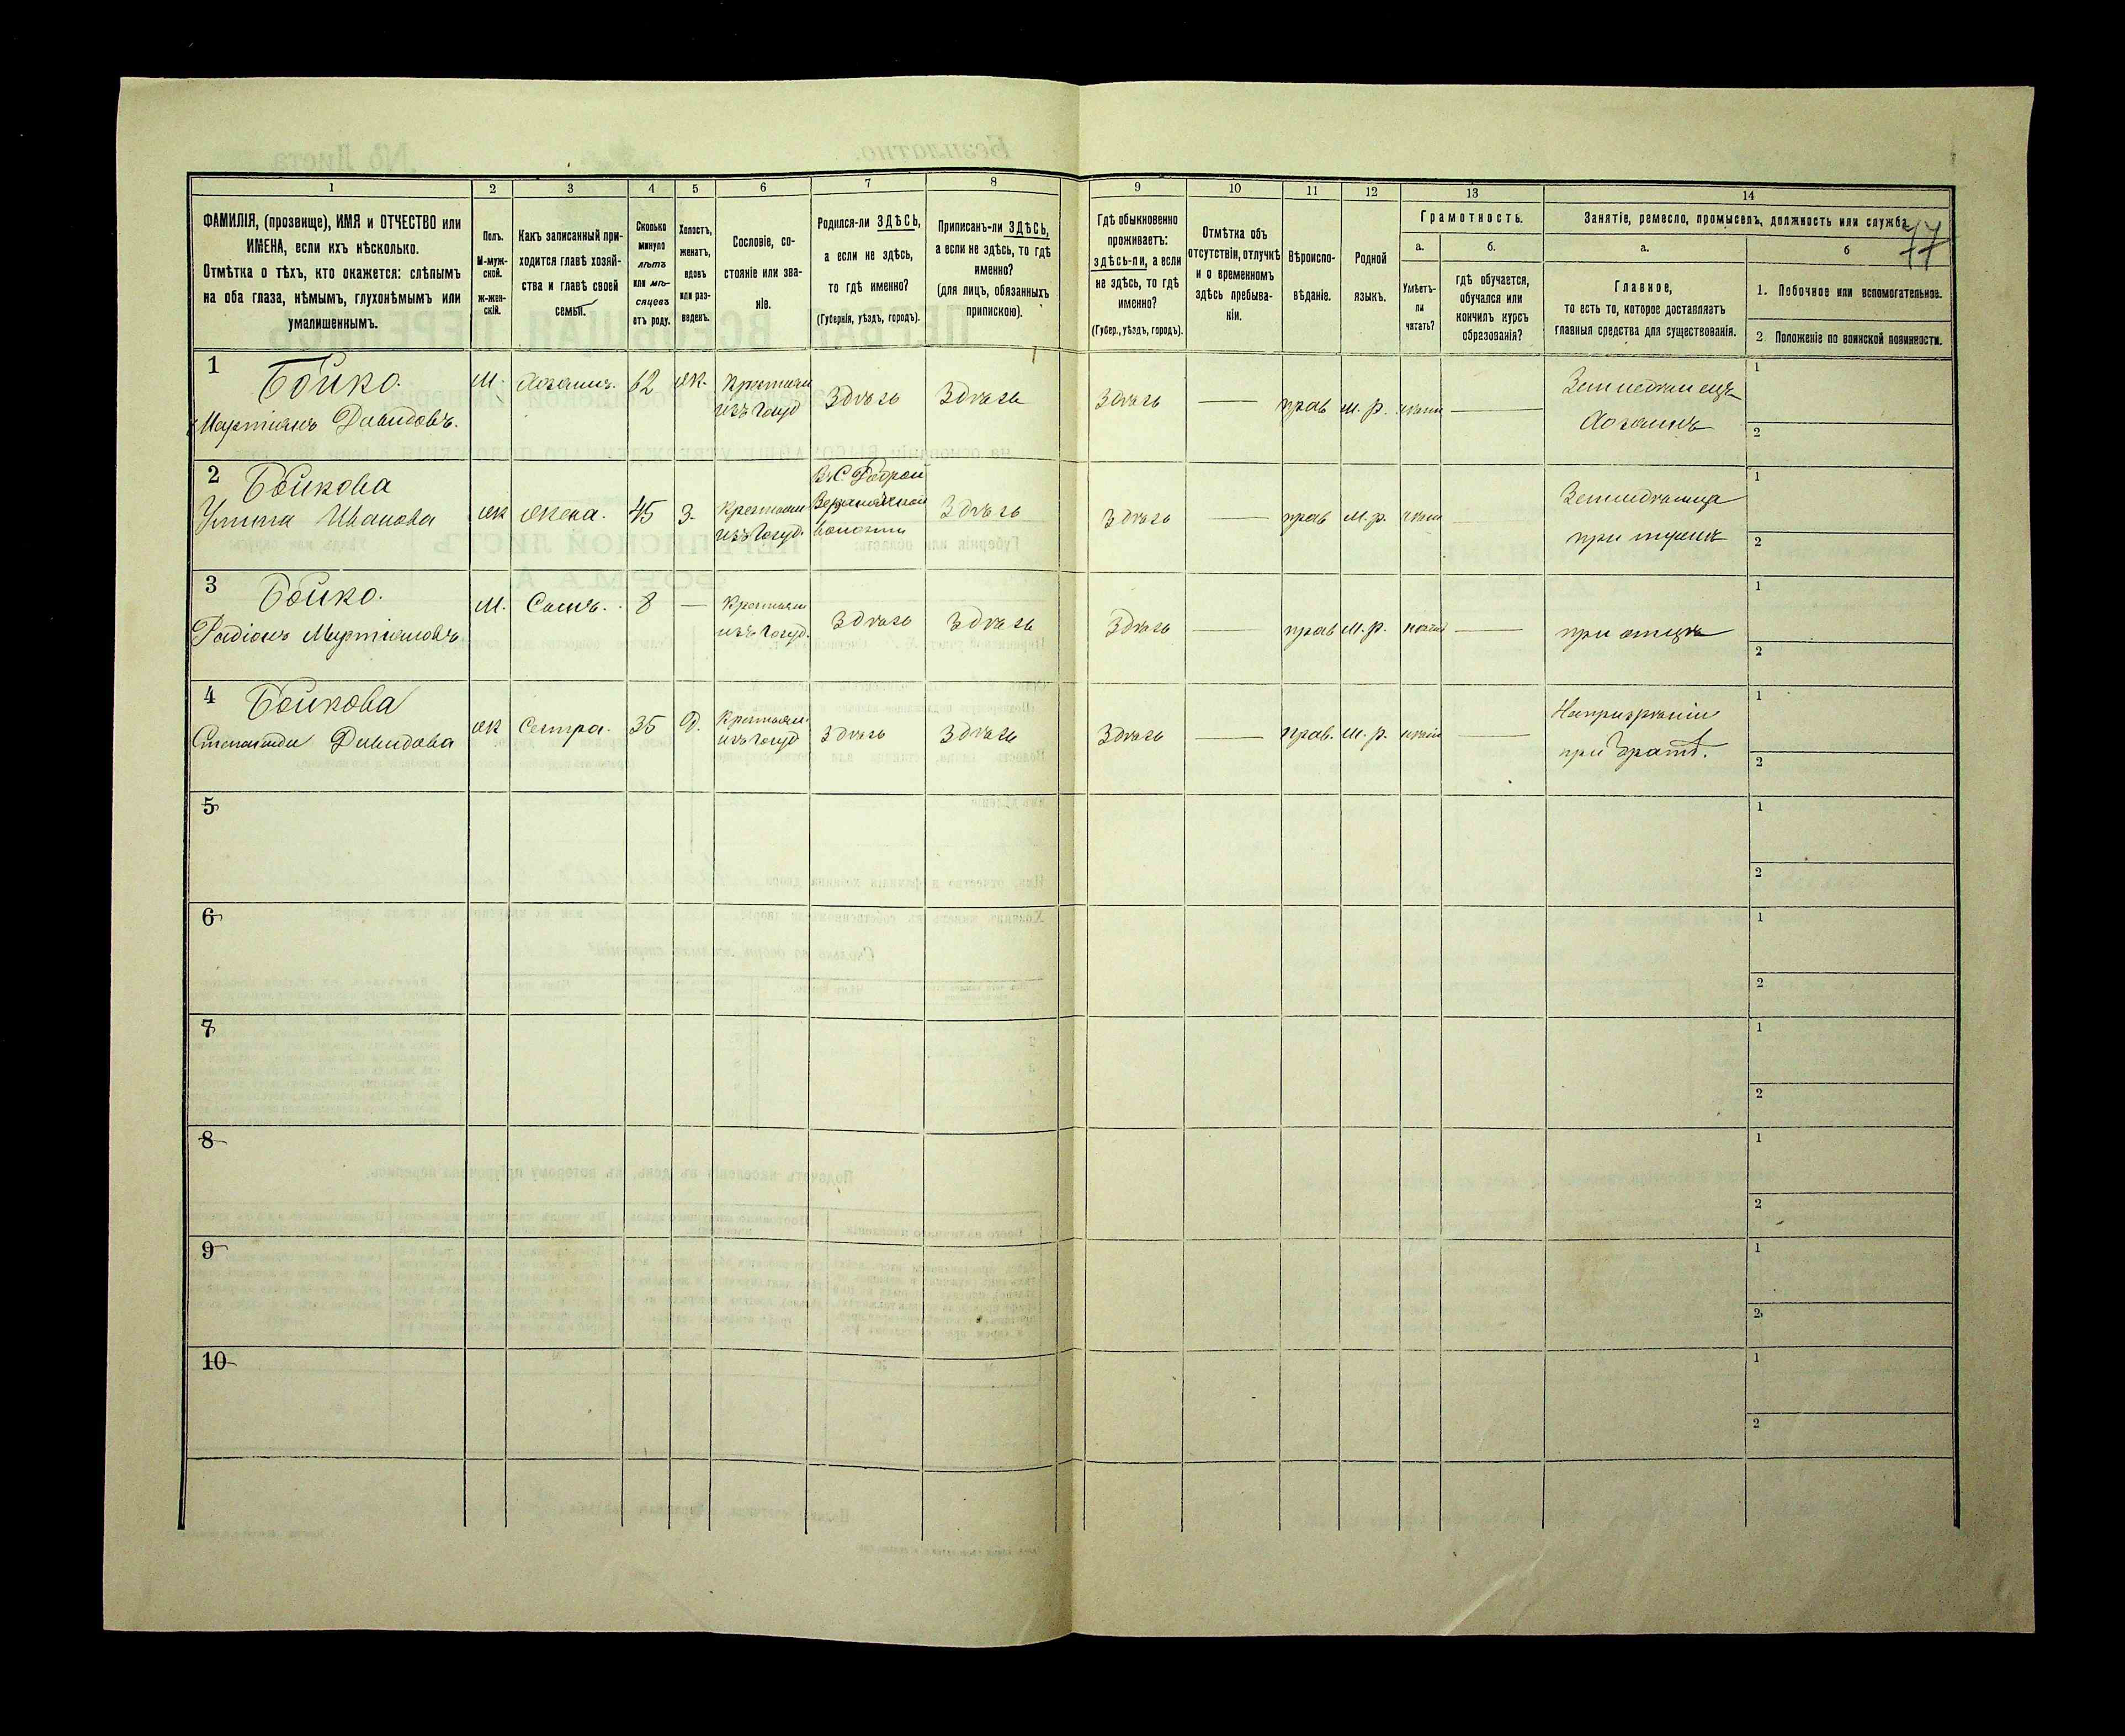 1 2 3 4 5 6 7 8 9 10 11 12 13 14
ФАМИЛІЯ, (прозвище), ИМЯ и ОТЧЕСТВО или
ИМЕНА, если ихъ нѣсколько.
Отмѣтка о тѣхъ, кто окажется: слѣпымъ
на оба глаза, нѣмымъ, глухонѣмымъ или
умалишеннымъ.
Полъ.
М-муж-
ской.
Ж-жен-
скій.
Какъ записанный при-
ходится главѣ хозяй-
ства и главѣ своей
семьи.
Сколько
минуло
лѣтъ
или мѣ-
сяцевъ
отъ роду.
Холостъ,
женатъ,
вдовъ
или раз-
веденъ.
Сословіе, со-
стояніе или зва-
ніе.
Родился-ли ЗДѢСЬ,
а если не здѣсь,
то гдѣ именно?
(Губернія, уѣздъ, городъ).
Приписанъ-ли ЗДѢСЬ,
а если не здѣсь, то гдѣ
именно?
(для лицъ, обязанныхъ
припискою).
Гдѣ обыкновенно
проживаетъ:
здѣсь-ли, а если
не здѣсь, то гдѣ
именно?
(Губер., уѣздъ, городъ).
Отмѣтка объ
отсутствіи, отлучкѣ
и о временномъ
здѣсь пребыва-
ніи.
Вѣроиспо-
вѣданіе.
Родной
языкъ.
Грамотность.
а. б.
Умѣетъ-
ли
читать?
гдѣ обучается,
обучался или
кончилъ курсъ
образованія?
Занятіе, ремесло, промыселъ, должность или служба.
77
а. б
Главное,
то есть то, которое доставляетъ
главныя средства для существованія.
1. Побочное или вспомогательное.
2 Положеніе по воинской повинности.
1 Бойко. М. Хозяинъ. 62 Ж. Крестьян Здѣсь Здѣсь Здѣсь — прав М. р. — Земледѣлецъ 1
Мартіанъ Давидовъ. изъ Госуд Хозяинъ 2
2 Бойкова Ж Жена. 45 З. Крестьян Здѣсь Здѣсь — прав М. р. Земледѣлица 1
Улита Иванова изъ Госуд. волости при мужѣ 2
3 Бойко. М. Сынъ. 8 — Крестьян Здѣсь Здѣсь Здѣсь — прав М. р. — при отцѣ 1
Радіонъ Мартіановъ изъ Госуд. 2
4 Бойкова Ж Сестра. 35 Д. Крестьян Здѣсь Здѣсь Здѣсь — прав. М. р. — На призрѣніи 1
Степанида Давидова изъ Госуд при братѣ. 2
5 1
2
6 1
2
7 1
2
8 1
2
9 1
2
10 1
2